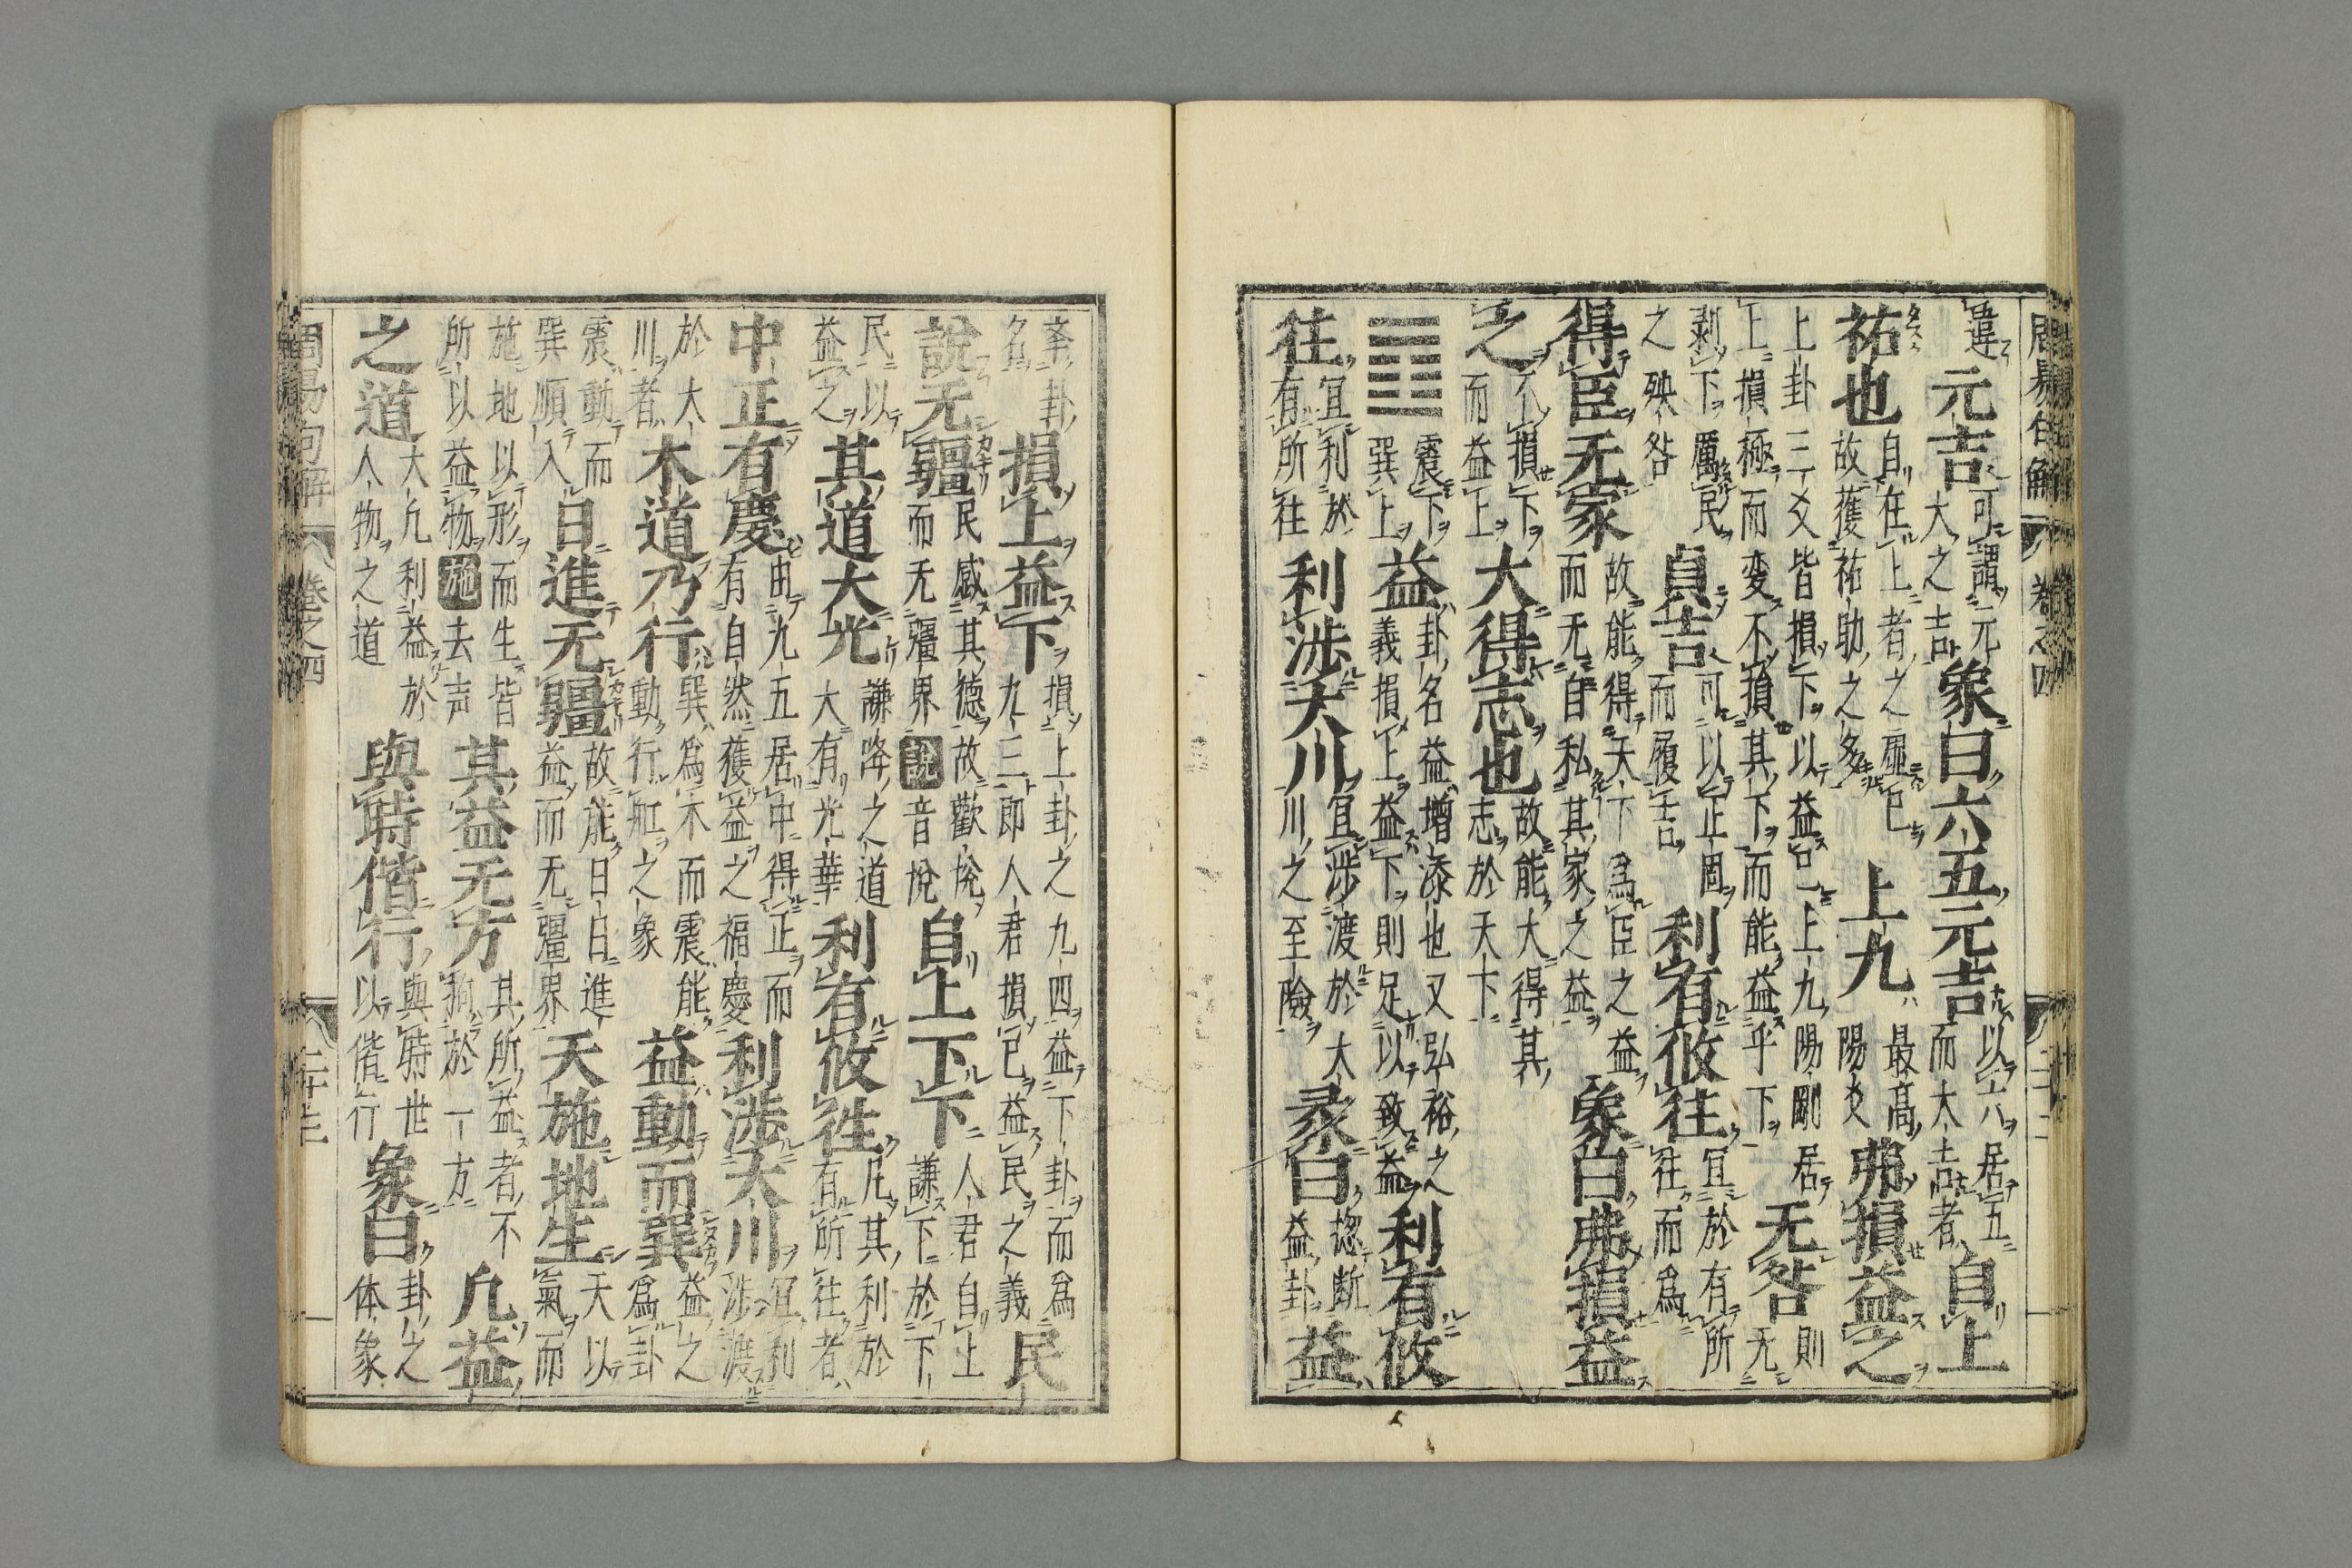 違 元吉 可謂元大之吉 象曰六五元吉 以六居五而大吉者 自上
祐也 自在上者之虛已故獲祐助之多 上九 最高陽爻 弗損益之
上卦三爻皆損下以益上上九陽剛居上損極而変不損其下而能益乎下 无咎 則无
之殃咎 剥下厲民 貞吉 可以正固而履吉 利有攸往 宜於有所往而爲
得臣无家 故能得天下爲臣之益而无自私其家之益 象曰弗損益
之 不損下而益上 大得志也 故能大得其志於天下
䷩ 震下巽上 益 卦名益增添也又弘裕之義損上益下則足以致益 利有攸
往 宜利於有所往 利涉大川 宜涉渡於大川之至險 彖曰 揔断益卦 益
卦名 損上益下 損上卦之九四益下卦而爲九三即人君損已益民之義 民
說无疆 民感其德故歡悅而无疆界 說音悅 自上下下 人君自上謙下於下
民以益之 其道大光 謙降之道大有光華 利有攸徃 凡其利於有所往者
中正有慶 由九五居中得正而有自然獲益之福慶 利涉大川 宜利涉渡
於大川者 木道乃行 巽爲木而震能動行舡之象 益動而巽 益之爲卦
震動而巽順入 日進无疆 故能日日進益而无疆界 天施地生 天以氣而
施地以形而生皆所以益物 施去声 其益无方 其所益者不拘於一方 凡益
之道 大凡利益於人物之道 與時偕行 與時世以偕行 象曰 卦之体象
周易句解 卷之四
周易句解 卷之四